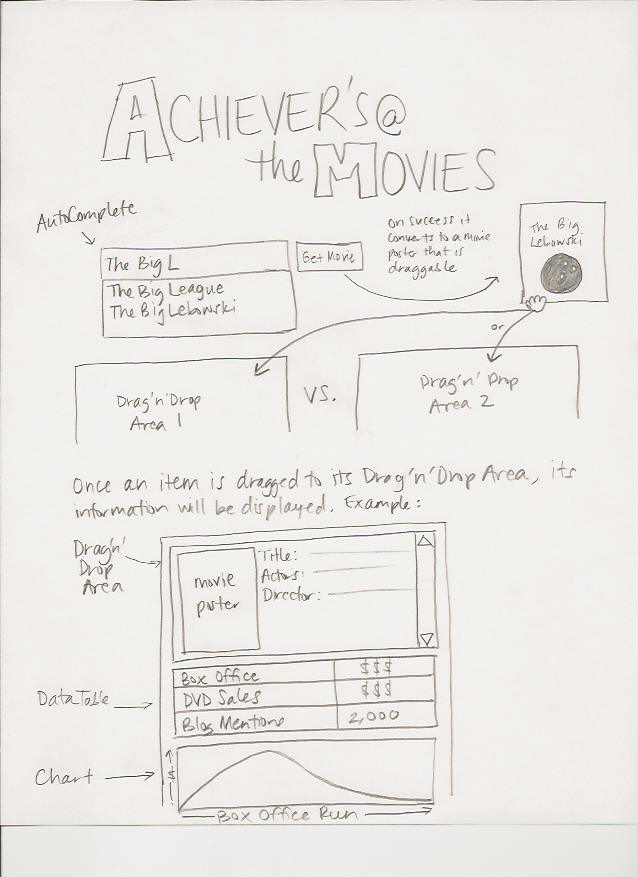 ACHIEVER'S@
the MOVIES
AutoComplete
The Big L
The Big League
The Big Lebowski
Get Movie
on success it
converts to a movie
poster that is
draggable
The Big
Lebowski
or
Drag'n'Drop
Area 1
VS.
Drag'n' Drop
Area 2
Once an item is dragged to its Drag'n'Drop Area, its
information will be displayed. Example:
Drag'n'
Drop
Area
movie
poster
Title:
Actors:
Director:
DataTable
Box Office $$$
DVD Sales $$$
Blog Mentions 2,000
Chart
$
Box Office Run